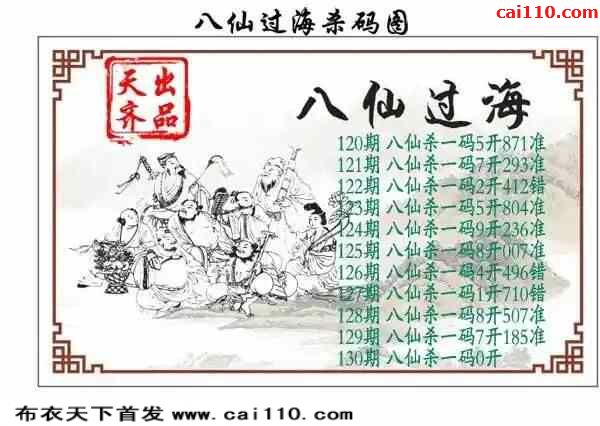 八仙过海杀码图
cai110.com
天齐
出品
八仙过海
120期 八仙杀一码5开871准
121期 八仙杀一码7开293准
122期 八仙杀一码2开412错
123期 八仙杀一码5开804准
124期 八仙杀一码9开236准
125期 八仙杀一码8开007准
126期 八仙杀一码4开496错
127期 八仙杀一码1开710错
128期 八仙杀一码8开507准
129期 八仙杀一码7开185准
130期 八仙杀一码0开
布衣天下首发 www.cai110.com